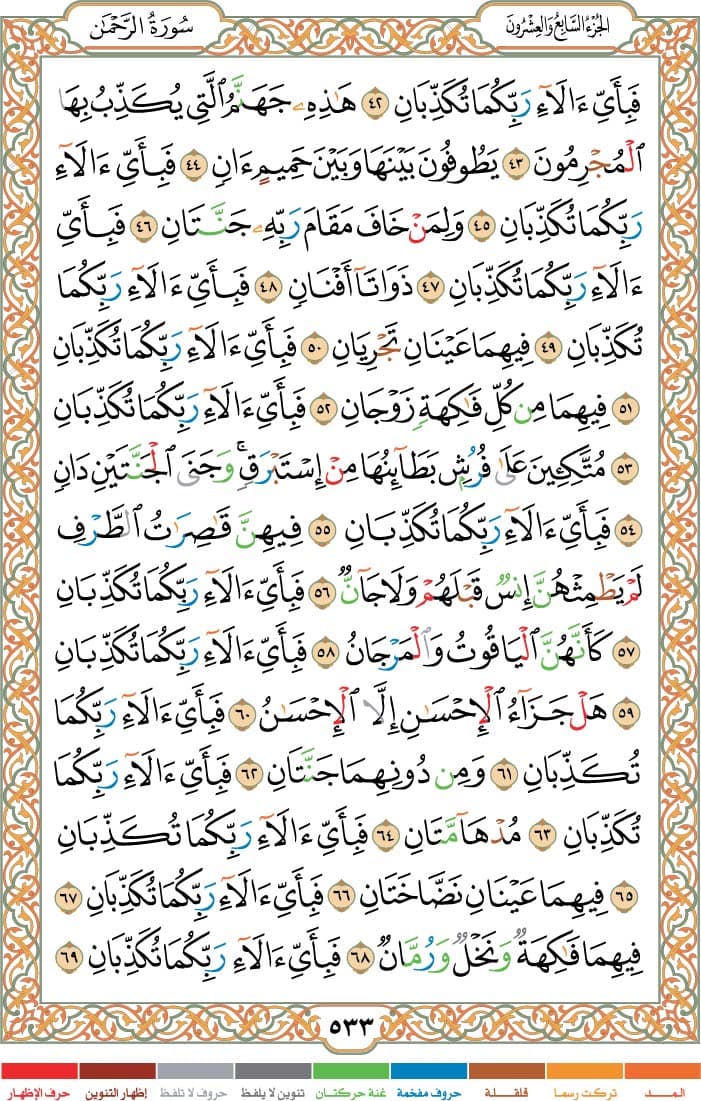 الجُزْءُ السَّابِعُ وَالعِشْرُونَ
سُورَةُ الرَّحْمَٰن
فَبِأَيِّ ءَالَآءِ رَبِّكُمَا تُكَذِّبَانِ ٤٢ هَٰذِهِۦ جَهَنَّمُ ٱلَّتِي يُكَذِّبُ بِهَا
ٱلْمُجْرِمُونَ ٤٣ يَطُوفُونَ بَيْنَهَا وَبَيْنَ حَمِيمٍ ءَانٍ ٤٤ فَبِأَيِّ ءَالَآءِ
رَبِّكُمَا تُكَذِّبَانِ ٤٥ وَلِمَنْ خَافَ مَقَامَ رَبِّهِۦ جَنَّتَانِ ٤٦ فَبِأَيِّ
ءَالَآءِ رَبِّكُمَا تُكَذِّبَانِ ٤٧ ذَوَاتَآ أَفْنَانٍ ٤٨ فَبِأَيِّ ءَالَآءِ رَبِّكُمَا
تُكَذِّبَانِ ٤٩ فِيهِمَا عَيْنَانِ تَجْرِيَانِ ٥٠ فَبِأَيِّ ءَالَآءِ رَبِّكُمَا تُكَذِّبَانِ
٥١ فِيهِمَا مِن كُلِّ فَٰكِهَةٍ زَوْجَانِ ٥٢ فَبِأَيِّ ءَالَآءِ رَبِّكُمَا تُكَذِّبَانِ
٥٣ مُتَّكِـِٔينَ عَلَىٰ فُرُشٍۭ بَطَآئِنُهَا مِنْ إِسْتَبْرَقٍۚ وَجَنَى ٱلْجَنَّتَيْنِ دَانٍ
٥٤ فَبِأَيِّ ءَالَآءِ رَبِّكُمَا تُكَذِّبَانِ ٥٥ فِيهِنَّ قَٰصِرَٰتُ ٱلطَّرْفِ
لَمْ يَطْمِثْهُنَّ إِنسٌ قَبْلَهُمْ وَلَا جَآنٌّ ٥٦ فَبِأَيِّ ءَالَآءِ رَبِّكُمَا تُكَذِّبَانِ
٥٧ كَأَنَّهُنَّ ٱلْيَاقُوتُ وَٱلْمَرْجَانُ ٥٨ فَبِأَيِّ ءَالَآءِ رَبِّكُمَا تُكَذِّبَانِ
٥٩ هَلْ جَزَآءُ ٱلْإِحْسَٰنِ إِلَّا ٱلْإِحْسَٰنُ ٦٠ فَبِأَيِّ ءَالَآءِ رَبِّكُمَا
تُكَذِّبَانِ ٦١ وَمِن دُونِهِمَا جَنَّتَانِ ٦٢ فَبِأَيِّ ءَالَآءِ رَبِّكُمَا
تُكَذِّبَانِ ٦٣ مُدْهَآمَّتَانِ ٦٤ فَبِأَيِّ ءَالَآءِ رَبِّكُمَا تُكَذِّبَانِ
٦٥ فِيهِمَا عَيْنَانِ نَضَّاخَتَانِ ٦٦ فَبِأَيِّ ءَالَآءِ رَبِّكُمَا تُكَذِّبَانِ ٦٧
فِيهِمَا فَٰكِهَةٌ وَنَخْلٌ وَرُمَّانٌ ٦٨ فَبِأَيِّ ءَالَآءِ رَبِّكُمَا تُكَذِّبَانِ ٦٩
٥٣٣
المـــد تركت رسما قلقـلـة حروف مفخمة غنة حركتـان تنوين لا يلفظ حروف لا تلفظ إظهار التنوين حرف الإظهار